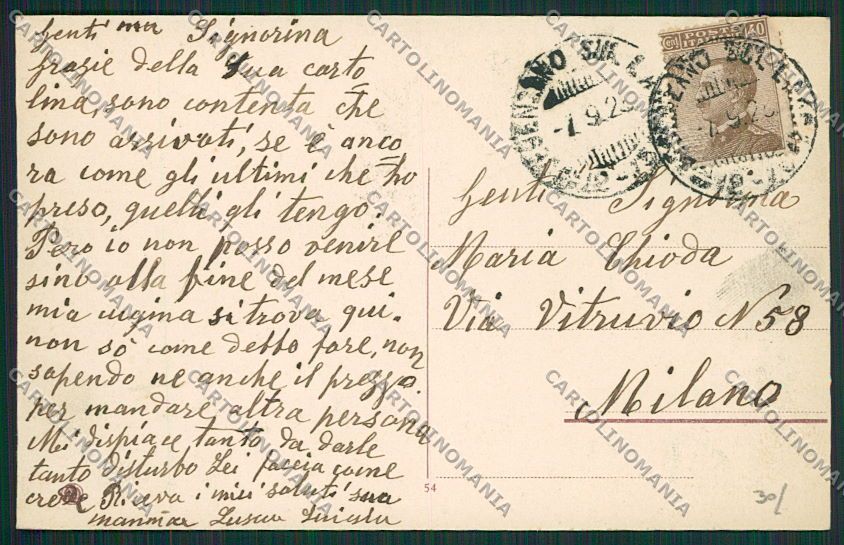 Genti ma Signorina
grasie della sua carto
lina, sono contenta che
sono arrivati, se è anco
ra come gli ultimi che ho
preso, quelli gli tengo.
Però io non posso venire
sino alla fine del mese
mia cugina si trova qui.
non sò come debbo fare, non
sapendo ne anche il prezzo
per mandare altra persona
Mi dispiace tanto da darle
tanto disturbo Lei faccia come
crede Riceva i miei saluti sua
mamma
POSTE ITALIANE
40
-7.9.29
Genti Signorina
Maria Chioda
Via Vitruvio N 58
Milano
54
CARTOLINOMANIA